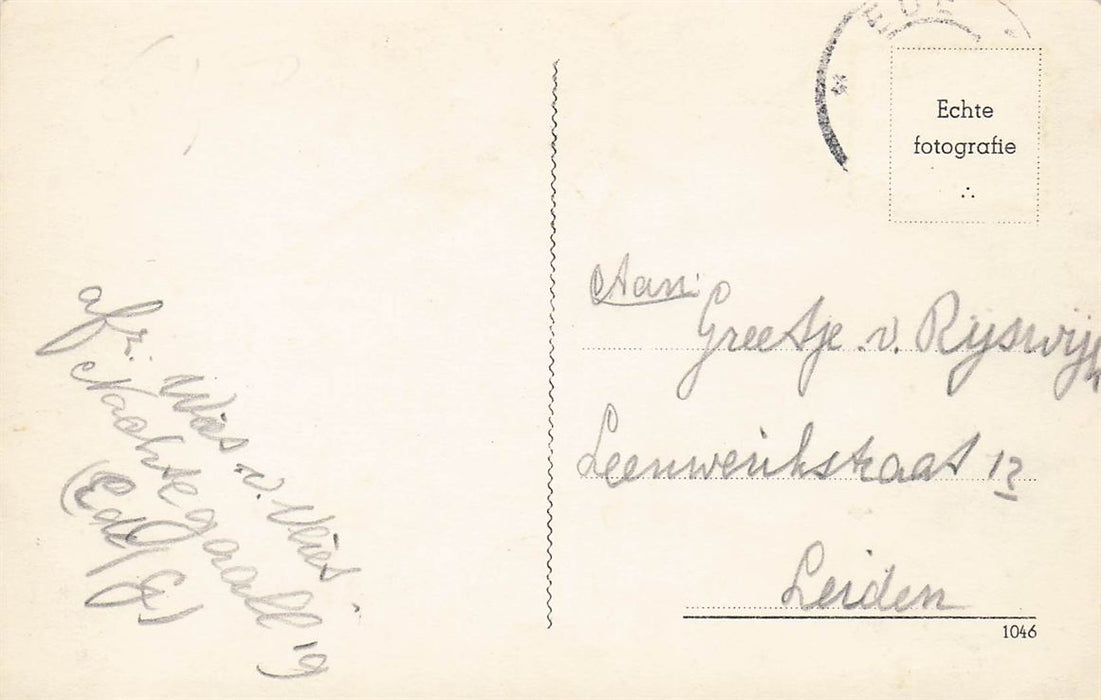 EDE
Echte
fotografie
Aan:
Greetje v. Rijswijk
Leeuwerikstraat 12
Leiden
1046
afz.
Wies v. Vliet
Nachtegaall 19
(Ede)